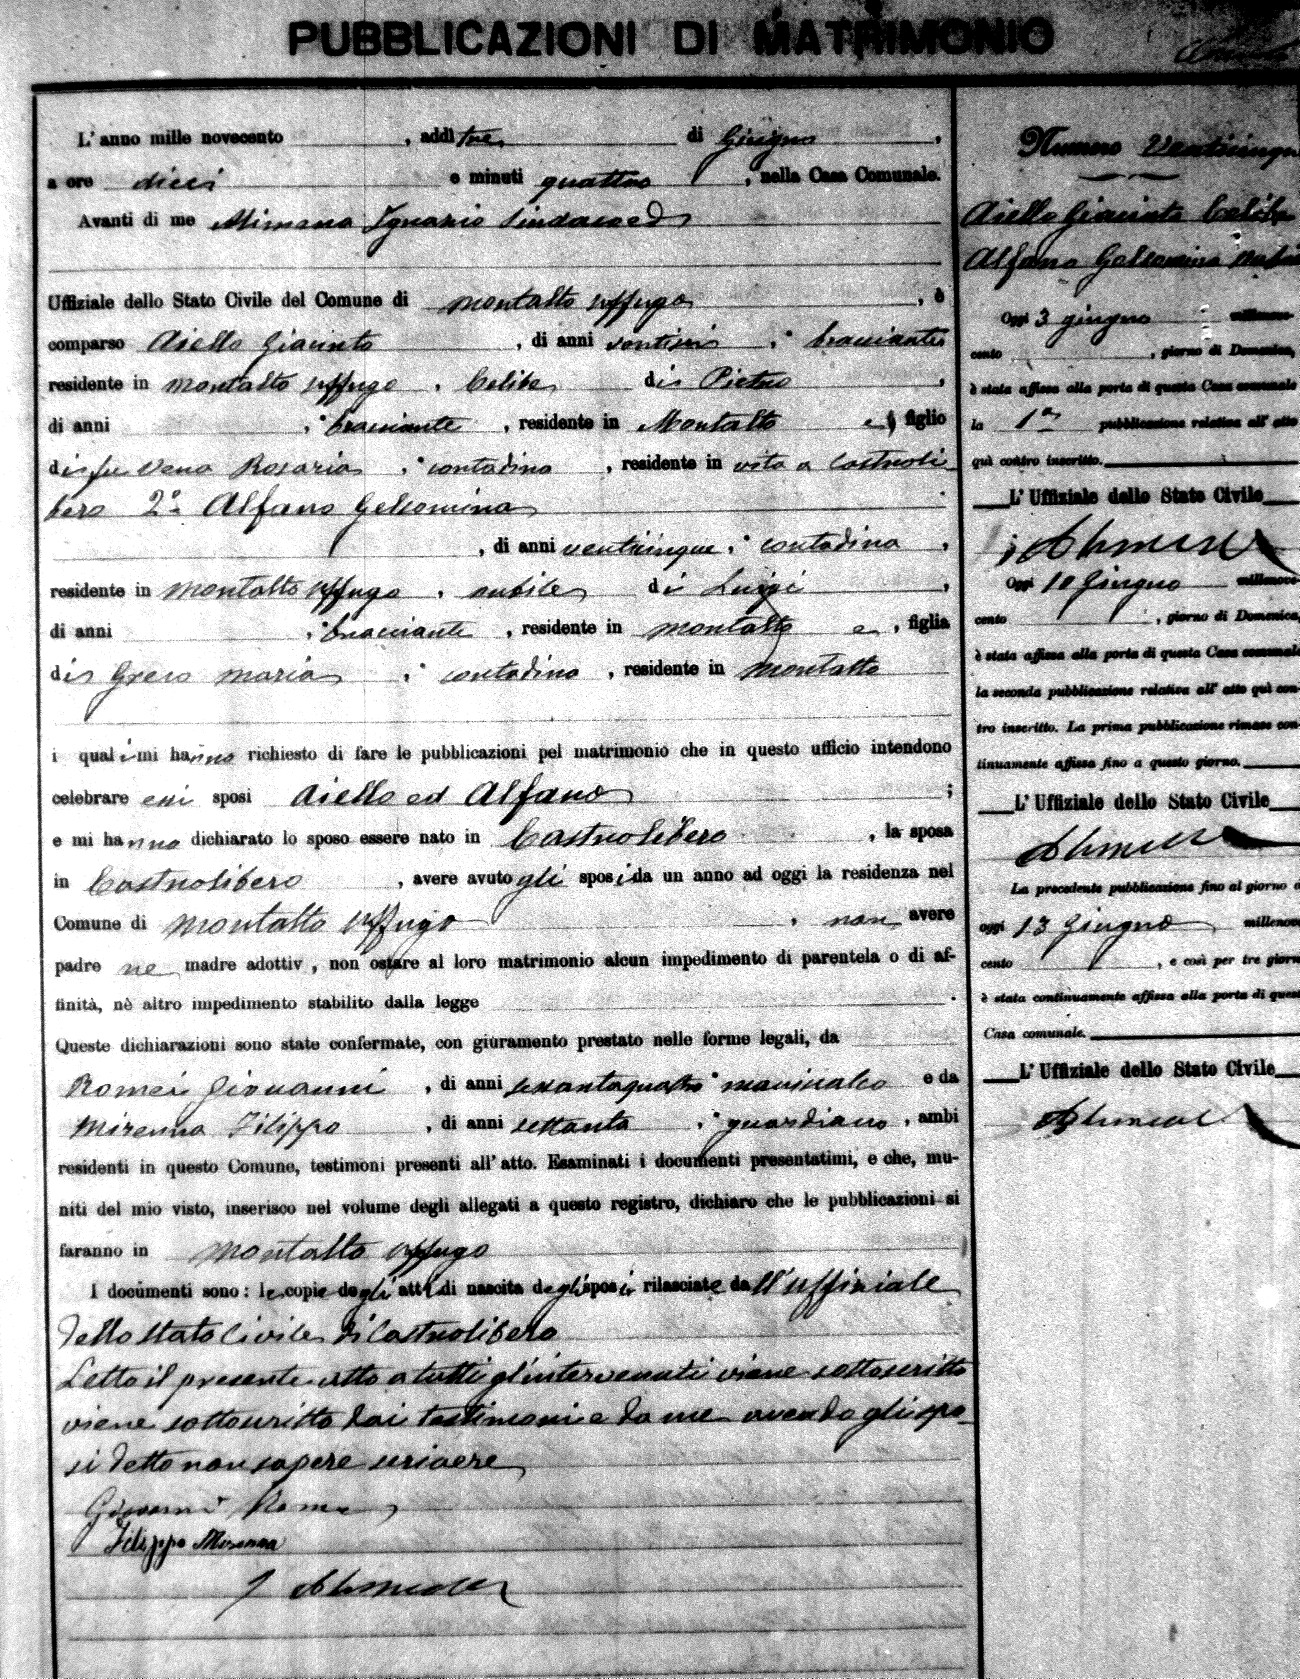 PUBBLICAZIONI DI MATRIMONIO
L'anno mille novecento , addì tre di Giugno ,
a ore dieci e minuti quattro , nella Casa Comunale.
Avanti di me Ignazio Sindaco ed
Uffiziale dello Stato Civile del Comune di Montalto Uffugo , è
comparso Aiello Giacinto , di anni ventisei , bracciante
residente in Montalto Uffugo , Celibe di Pietro ,
di anni , bracciante , residente in Montalto e , figlio
di fu Vena Rosaria , contadina , residente in vita a Castroli
bero 2º Alfano Gelsomina
, di anni venticinque , contadina ,
residente in Montalto Uffugo , nubile di Luigi ,
di anni , bracciante , residente in Montalto e , figlia
di Greco Maria , contadina , residente in Montalto
i quali mi hanno richiesto di fare le pubblicazioni pel matrimonio che in questo ufficio intendono
celebrare essi sposi Aiello ed Alfano ;
e mi hanno dichiarato lo sposo essere nato in Castrolibero , la sposa
in Castrolibero , avere avuto gli sposi da un anno ad oggi la residenza nel
Comune di Montalto Uffugo , non avere
padre ne madre adottiv , non ostare al loro matrimonio alcun impedimento di parentela o di af-
finità, nè altro impedimento stabilito dalla legge .
Queste dichiarazioni sono state confermate, con giuramento prestato nelle forme legali, da
Romei Giovanni , di anni sessantaquattro e da
Mirenna Filippo , di anni settanta , guardiano , ambi
residenti in questo Comune, testimoni presenti all'atto. Esaminati i documenti presentatimi, e che, mu-
niti del mio visto, inserisco nel volume degli allegati a questo registro, dichiaro che le pubblicazioni si
faranno in Montalto Uffugo
I documenti sono: le copie degli atti di nascita degli sposi rilasciate dall'uffiziale
dello stato Civile di Castrolibero
Letto il presente atto a tutti gl'intervenuti viene sottoscritto
viene sottoscritto dai testimoni e da me avendo gli spo-
si detto non sapere scrivere
Giovanni Romei
Filippo Mirenna
Numero Venticinque
Aiello Giacinto Celibe
Alfano Gelsomina nubile
Oggi 3 giugno millenove-
cento , giorno di Domenica,
è stata affissa alla porta di questa Casa comunale
la 1ª pubblicazione relativa all'atto
quì contro inscritto.
L'Uffiziale dello Stato Civile
Oggi 10 Giugno millenove-
cento , giorno di Domenica,
è stata affissa alla porta di questa Casa comunale
la seconda pubblicazione relativa all'atto quì con-
tro inscritto. La prima pubblicazione rimase con-
tinuamente affissa fino a questo giorno.
L'Uffiziale dello Stato Civile
La precedente pubblicazione fino al giorno d
oggi 13 Giugno millenove
cento , e così per tre giorn
è stata continuamente affissa alla porta di quest
Casa comunale.
L'Uffiziale dello Stato Civile